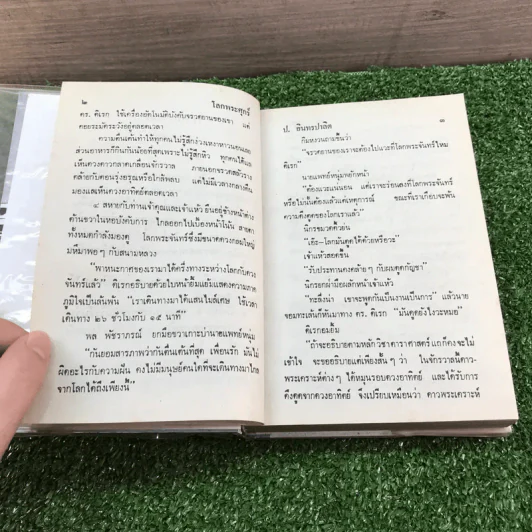 ๒ โลกพระศุกร์
ดร. ดิเรก ใช้เครื่องอัตโนมัติบังคับจรวดยานของเขา แต่
คอยระมัดระวังอยู่ตลอดเวลา
ความตื่นเต้นทำให้ทุกคนไม่รู้สึกง่วงเหงาหาวนอนเลย
ส่วนอาหารก็กินกันน้อยที่สุดเพราะไม่รู้สึกหิว ทุกคนได้แล
เห็นดวงดาวกลาดเกลื่อนจักรวาล ภายนอกจรวดสลัวราง
คล้ายกับตอนรุ่งอรุณหรือใกล้พลบ แต่ไม่มีเวลากลางคืน
มองแลเห็นดวงอาทิตย์ตลอดเวลา
๔ สหายกับท่านเจ้าคุณและเจ้าแห้ว ยืนอยู่ข้างหน้าต่าง
ด้านขวาในหอบังคับการ ไกลออกไปเบื้องหน้าโน้น สายตา
ทั้งหมดกำลังมองดู โลกพระจันทร์ซึ่งมีขนาดดวงกลมใหญ่
มหึมาพอ ๆ กับสนามหลวง
"พาหนะกาศของเรามาได้ครึ่งทางระหว่างโลกกับดวง
จันทร์แล้ว" ดิเรกอธิบายด้วยใบหน้ายิ้มแย้มแสดงความภาค
ภูมิใจเป็นล้นพ้น "เราเดินทางมาได้แสนไมล์เศษ ใช้เวลา
เดินทาง ๒๖ ชั่วโมงกับ ๑๕ นาที"
พล พัชราภรณ์ ยกมือขวาเกาะบ่านายแพทย์หนุ่ม
"กันยอมสารภาพว่ากันตื่นเต้นที่สุด เพื่อนรัก มันไม่
ผิดอะไรกับความฝัน คงไม่มีมนุษย์คนใดที่จะเดินทางมาไกล
จากโลกได้ถึงเพียงนี้"
ป. อินทรปาลิต ๓
กิมหงวนถามขึ้นว่า
"จรวดยานของเราจะต้องไปแวะที่โลกพระจันทร์ไหม
ดิเรก"
นายแพทย์หนุ่มพยักหน้า
"ต้องแวะแน่นอน แต่เราจะร่อนลงที่โลกพระจันทร์
หรือไม่นั้นต้องแล้วแต่เหตุการณ์ ขณะที่เราบินจะต้องพ้น
ความดึงดูดของโลกเราแล้ว"
นิกรขมวดคิ้วย่น
"เอ๊ะ–โลกมันดูดได้ด้วยหรือวะ"
เจ้าแห้วสอดขึ้น
"รับประทานคงคล้าย ๆ กับผมดูดกัญชา"
นิกรยกฝ่ามือผลักหน้าเจ้าแห้ว
"ทะลึ่งน่า เขาจะพูดกันเป็นงานเป็นการ" แล้วนาย
จอมทะเล้นก็หันมาทาง ดร. ดิเรก "มันดูดยังไงวะหมอ"
ดิเรกอมยิ้ม
"ถ้าจะอธิบายตามหลักวิชาดาราศาสตร์ แกก็คงจะไม่
เข้าใจ จะขออธิบายแต่เพียงสั้น ๆ ว่า ในจักรวาลนี้ดาว-
พระเคราะห์ต่าง ๆ ได้หมุนรอบดวงอาทิตย์ และได้รับการ
ดึงดูดจากดวงอาทิตย์ จึงเปรียบเหมือนว่า ดาวพระเคราะห์